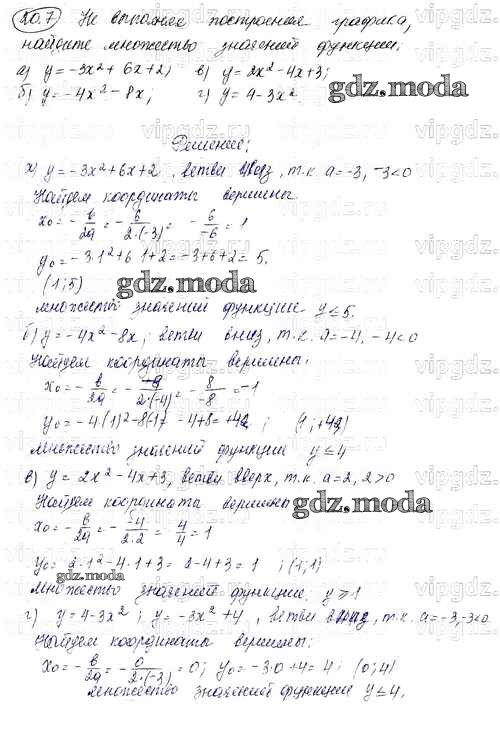 20.7 Не выполняя построения графика,
найдите множество значений функции:
а) y=-3x²+6x+2; в) y=2x²-4x+3;
б) y=-4x²-8x; г) y=4-3x²
gdz.moda
Решение:
а) y=-3x²+6x+2, ветви вниз, т.к. a=-3, -3<0
Найдем координаты вершины.
x₀=-b/2a=-6/2·(-3)=-6/-6=1
y₀=-3·1²+6·1+2=-3+6+2=5.
(1;5)
gdz.moda
множество значений функции y≤5.
б) y=-4x²-8x; ветви вниз, т.к. a=-4, -4<0
Найдем координаты вершины.
x₀=-b/2a=-
y₀=
множество значений функции y≤4
в) y=2x²-4x+3, ветви вверх, т.к. a=2, 2>0
Найдем координаты вершины
gdz.moda
x₀=-b/2a=--4/2·2=4/4=1
y₀=2·1²-4·1+3=2-4+3=1; (1;1)
gdz.moda
Множество значений функции, y≥1
г) y=4-3x²; y=-3x²+4, ветви вниз, т.к. a=-3, -3<0
Найдем координаты вершины:
x₀=-b/2a=-0/2·(-3)=0; y₀=-3·0+4=4; (0;4)
множество значений функции y≤4.